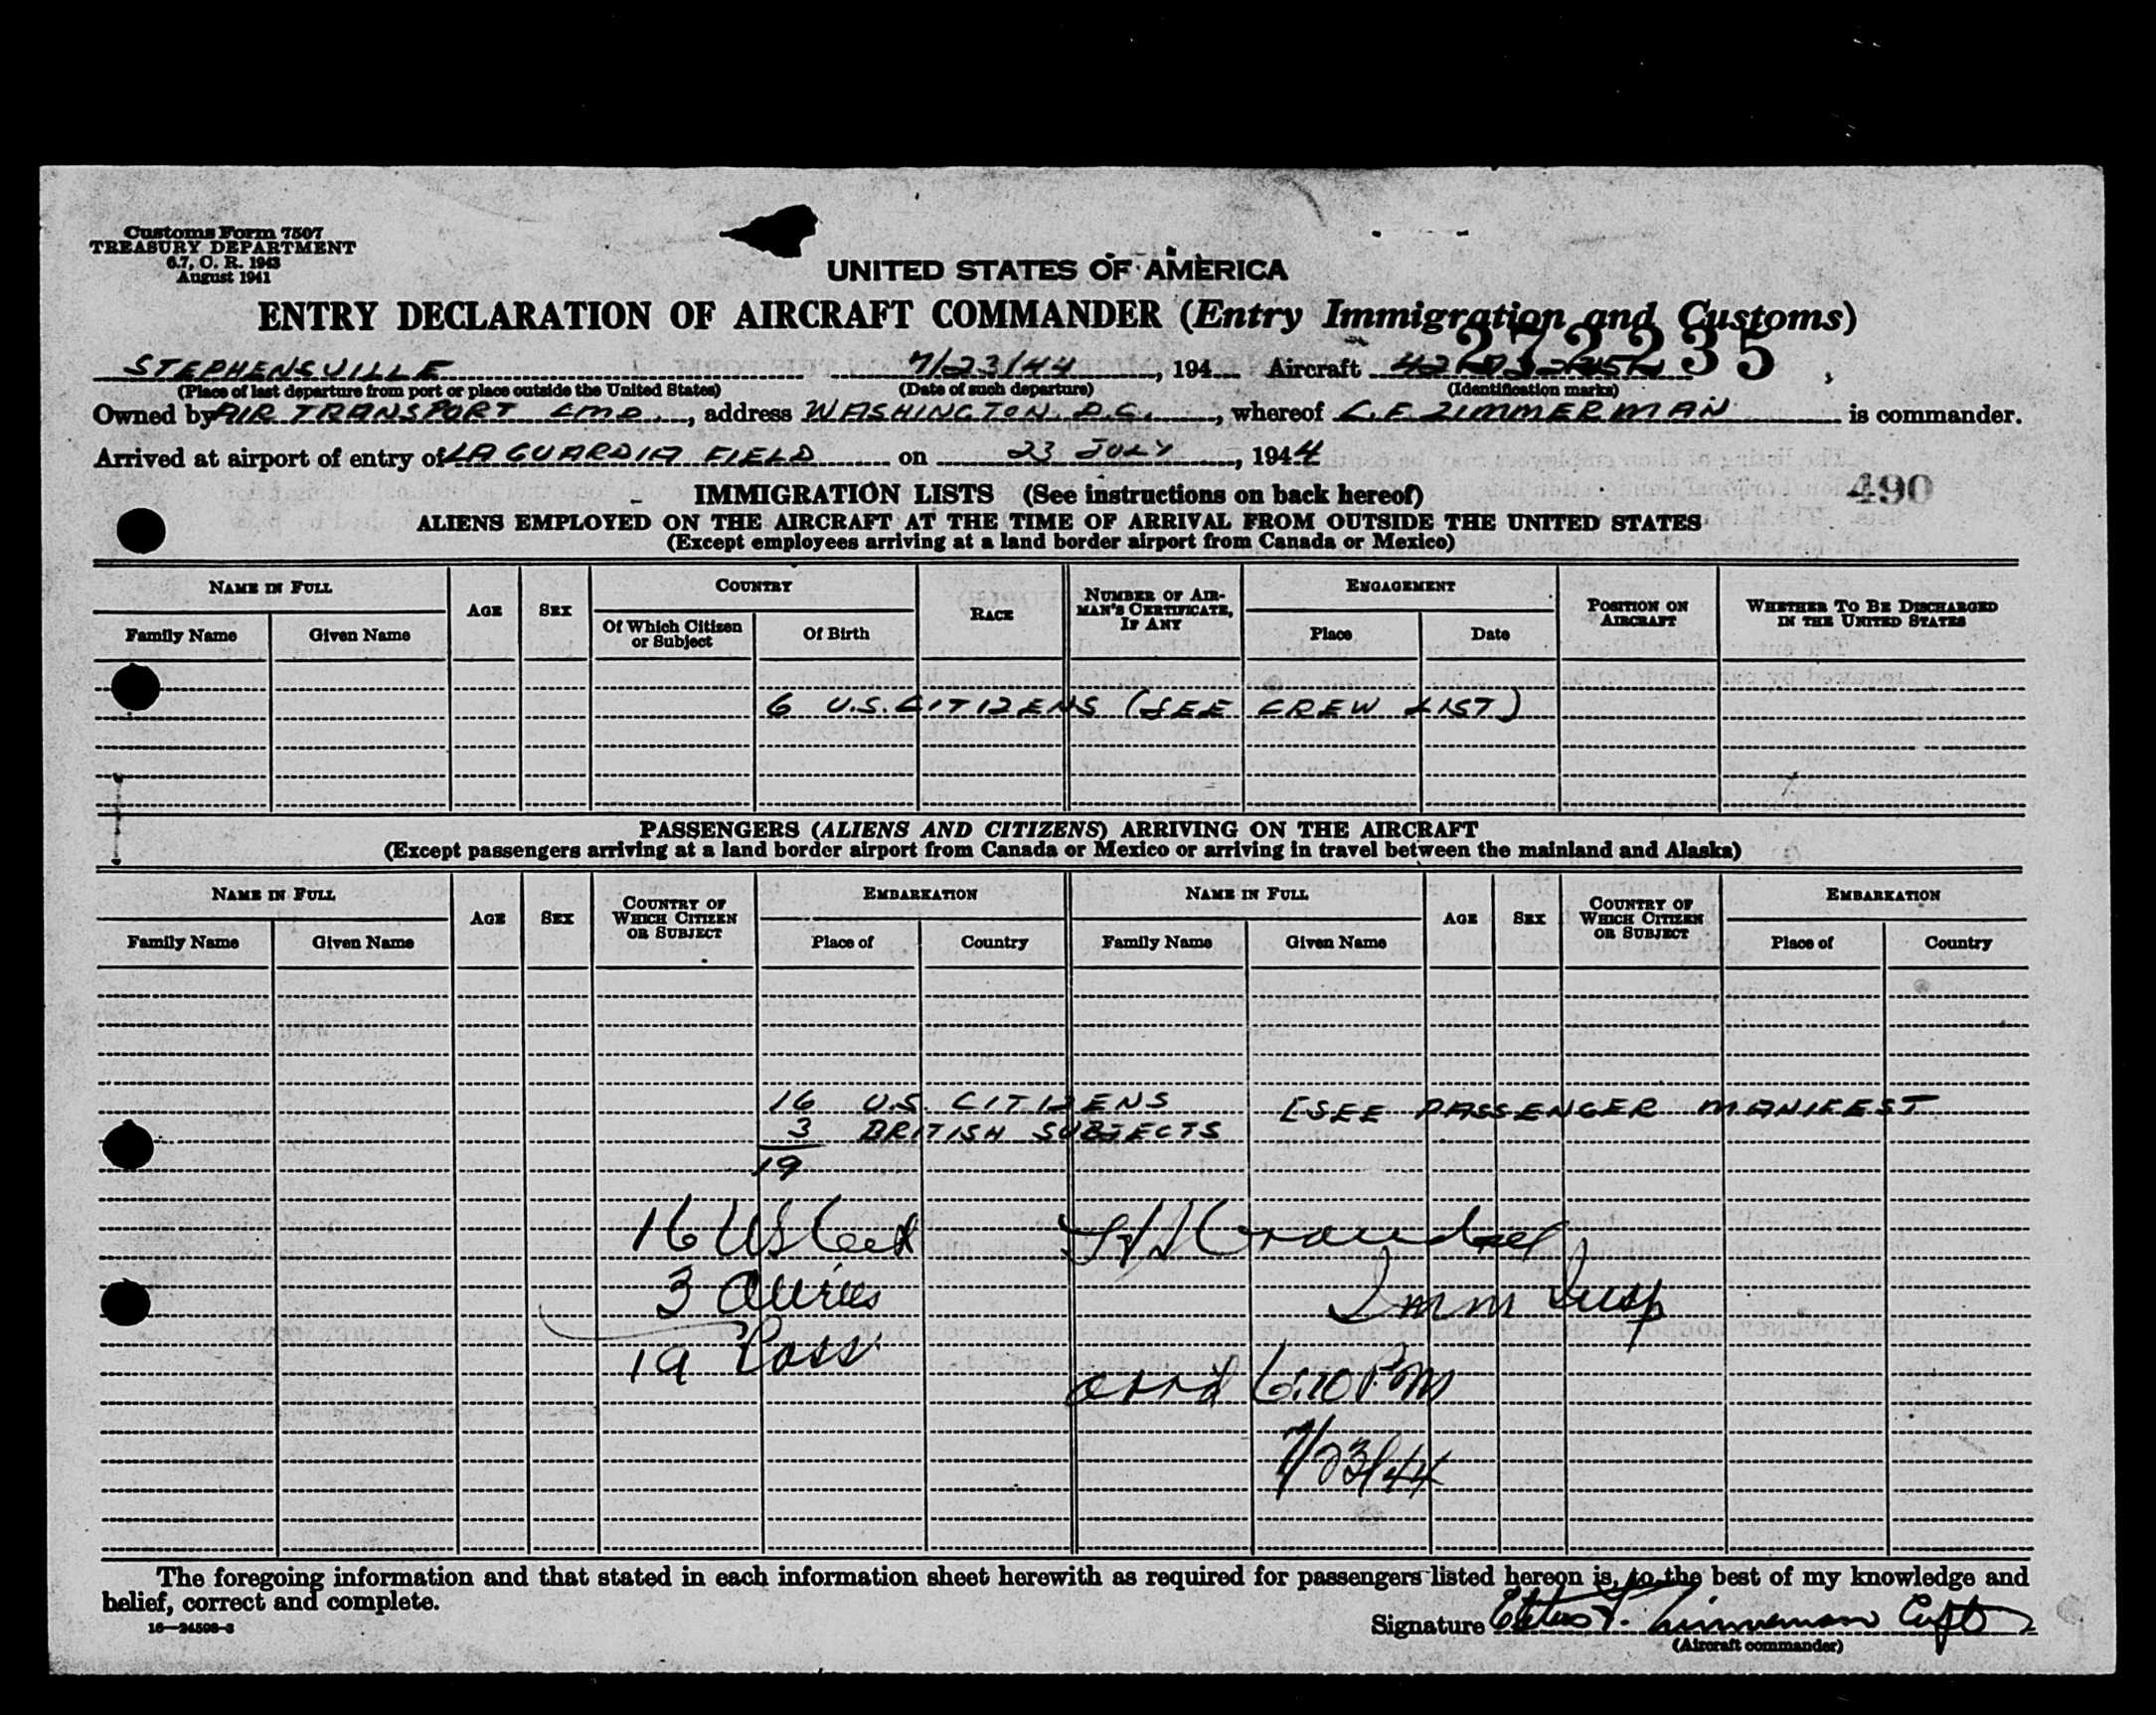 Customs Form 7507
TREASURY DEPARTMENT
6.7, C. R. 1943
August 1941
UNITED STATES OF AMERICA
ENTRY DECLARATION OF AIRCRAFT COMMANDER (Entry Immigration and Customs)
272235
STEPHENSVILLE 7/23/44, 194 Aircraft
(Place of last departure from port or place outside the United States) (Date of such departure) (Identification marks)
Owned by AIR TRANSPORT CMD., address WASHINGTON D.C., whereof C.F ZIMMERMAN is commander.
Arrived at airport of entry of LA GUARDIA FIELD on 23 JULY, 1944
490
IMMIGRATION LISTS (See instructions on back hereof)
ALIENS EMPLOYED ON THE AIRCRAFT AT THE TIME OF ARRIVAL FROM OUTSIDE THE UNITED STATES
(Except employees arriving at a land border airport from Canada or Mexico)
NAME IN FULL AGE SEX COUNTRY RACE NUMBER OF AIRMAN'S CERTIFICATE, IF ANY ENGAGEMENT POSITION ON AIRCRAFT WHETHER TO BE DISCHARGED IN THE UNITED STATES
Family Name Given Name Of Which Citizen or Subject Of Birth Place Date
6 U.S. CITIZENS (SEE CREW LIST)
PASSENGERS (ALIENS AND CITIZENS) ARRIVING ON THE AIRCRAFT
(Except passengers arriving at a land border airport from Canada or Mexico or arriving in travel between the mainland and Alaska)
NAME IN FULL AGE SEX COUNTRY OF WHICH CITIZEN OR SUBJECT EMBARKATION NAME IN FULL AGE SEX COUNTRY OF WHICH CITIZEN OR SUBJECT EMBARKATION
Family Name Given Name Place of Country Family Name Given Name Place of Country
16 U.S. CITIZENS (SEE PASSENGER MANIFEST
3 BRITISH SUBJECTS
19
16 US
3 Aliens Imm Insp
19 Pass
arrd 6:10 P.M
7/23/44
The foregoing information and that stated in each information sheet herewith as required for passengers listed hereon is, to the best of my knowledge and
belief, correct and complete.
16—24598-3
Signature F. Zimmerman Capt
(Aircraft commander)